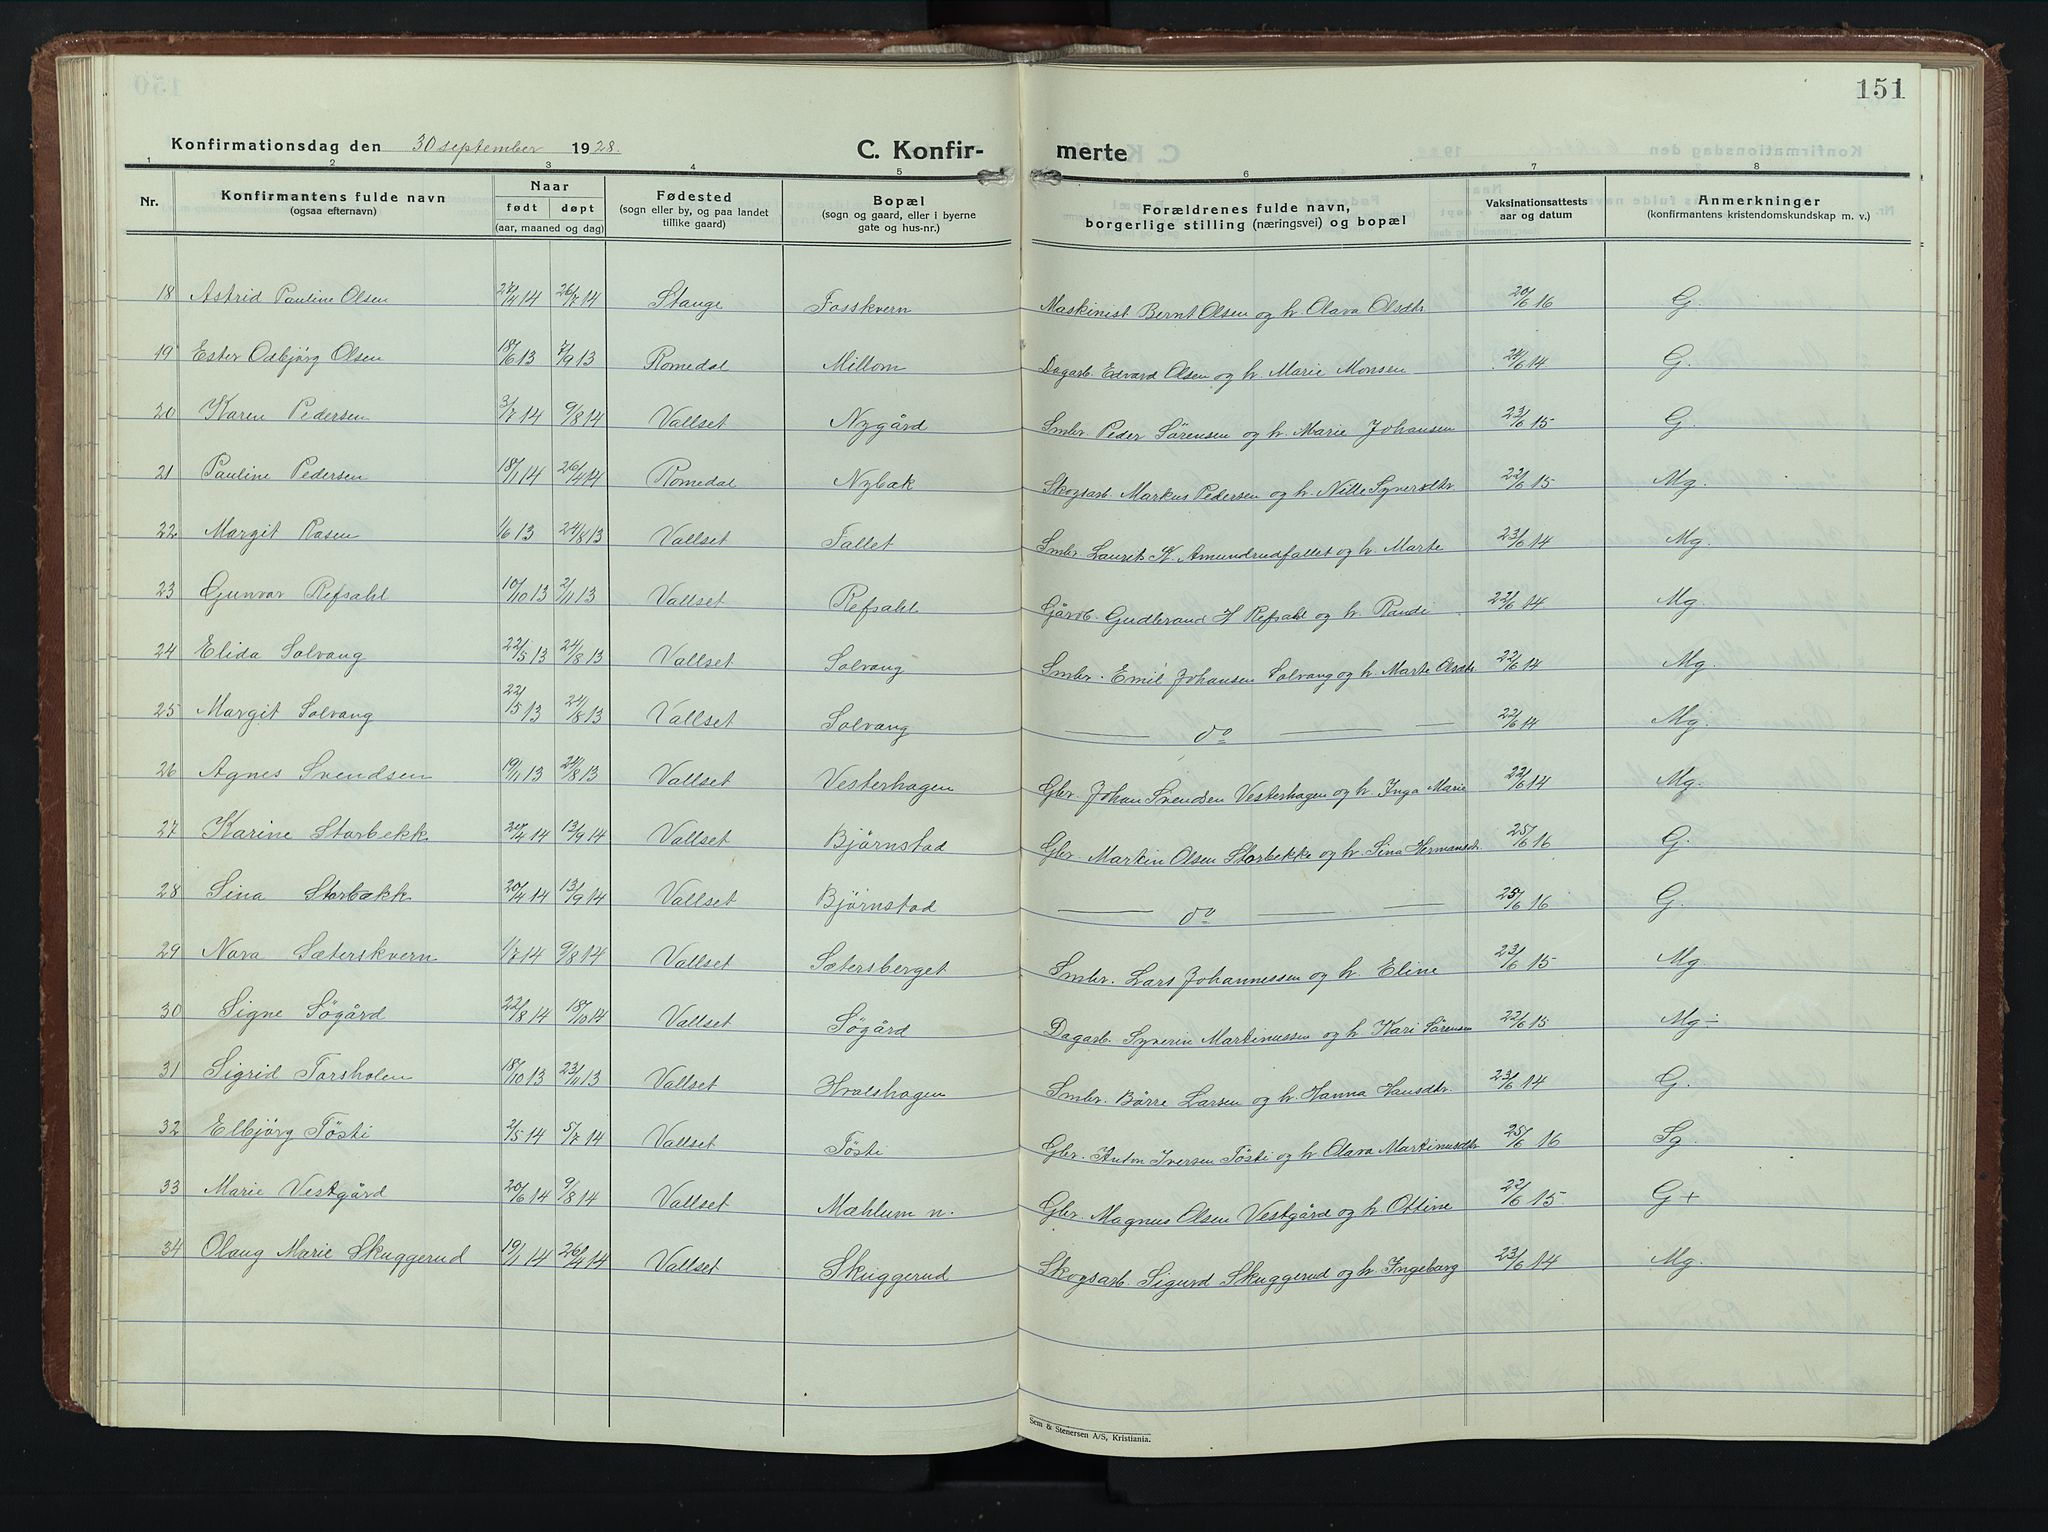 151
Konfirmationsdag den 30 september 1928.
C. Konfir- merte
1 2 3 4 5 6 7 8
Nr. Konfirmantens fulde navn (ogsaa efternavn) Naar født døpt (aar, maaned og dag) Fødested (sogn eller by, og paa landet tillike gaard) Bopæl (sogn og gaard, eller i byerne gate og hus-nr.) Forældrenes fulde navn, borgerlige stilling (næringsvei) og bopæl Vaksinationsattests aar og datum Anmerkninger (konfirmantens kristendomskundskap m. v.)
18 Astrid Pauline Olsen 27/4 14 26/7 14 Stange Fosskvern Maskinist Bernt Olsen og h. Olava Olsdtr 20/6 16 G.
19 Ester Osbjörg Olsen 18/6 13 7/9 13 Romedal Millom Dagarb. Edvard Olsen og h. Marie Monsen 24/6 14 G.
20 Karen Pedersen 3/7 14 9/8 14 Vallset Nygård Smbr. Peder Sörensen og h. Marie Johansen 23/6 15 G.
21 Pauline Pedersen 18/1 14 26/4 14 Romedal Nybak Skogsarb. Markus Pedersen og h. Nille Syversdtr 22/6 15 Mg.
22 Margit Rasen 1/6 13 24/8 13 Vallset Fallet Smbr. Laurits K. Amundrudfallet og h. Marte 23/6 14 Mg.
23 Gunvor Refsahl 10/10 13 2/11 13 Vallset Refsahl Gårdb. Gudbrand H Refsahl og h. Randi 22/6 14 Mg.
24 Elida Solvang 22/5 13 24/8 13 Vallset Solvang Smbr. Emil Johansen Solvang og h. Marte Olsdtr. 22/6 14 Mg.
25 Margit Solvang 22/5 13 24/8 13 Vallset Solvang — do — — 22/6 14 Mg.
26 Agnes Svendsen 19/1 13 24/8 13 Vallset Vesterhagen Gbr. Johan Svendsen Vesterhagen og h. Inga Marie 22/6 14 Mg.
27 Karine Storbekk 20/4 14 13/9 14 Vallset Björnstad Gbr. Martin Olsen Storbekke og h. Sina Hermansdtr. 25/6 16 G.
28 Sina Storbækk 20/4 14 13/9 14 Vallset Björnstad — do — — 25/6 16 G.
29 Nora Sæterskvern 1/7 14 9/8 14 Vallset Sætersberget Smbr. Lars Johannessen og h. Eline 23/6 15 Mg.
30 Signe Sögård 22/8 14 18/10 14 Vallset Sögård Dagarb. Syverin Martinussen og h. Kari Sörensen 22/6 15 Mg ÷
31 Sigrid Torsholen 18/10 13 23/11 13 Vallset Hvalshagen Smbr. Börre Larsen og h. Hanna Hansdtr. 23/6 14 G.
32 Elbjörg Tösti 2/5 14 5/7 14 Vallset Tösti Gbr. Anton Iversen Tösti og h Olava Martinusdtr 25/6 16 Sg.
33 Marie Vestgård 20/6 14 9/8 14 Vallset Mæhlum n. Gbr. Magnus Olsen Vestgård og h. Ottine 22/6 15 G +
34 Olaug Marie Skuggerud 19/1 14 26/4 14 Vallset Skuggerud Skogsarb. Sigurd Skuggerud og h. Ingeborg 23/6 14 Mg.
Sem & Stenersen A/S, Kristiania.